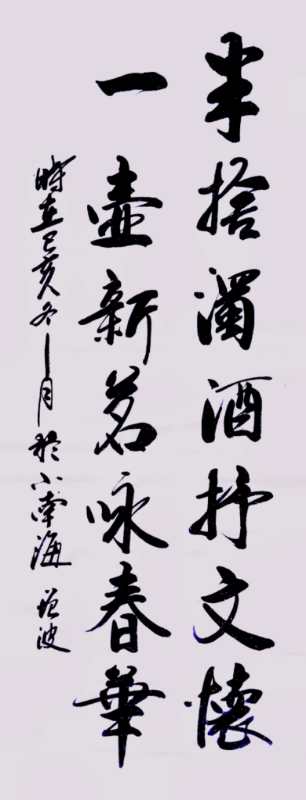 半捨濁酒抒文懷
一壺新茗咏春華
時在己亥冬一月於小南海 增波